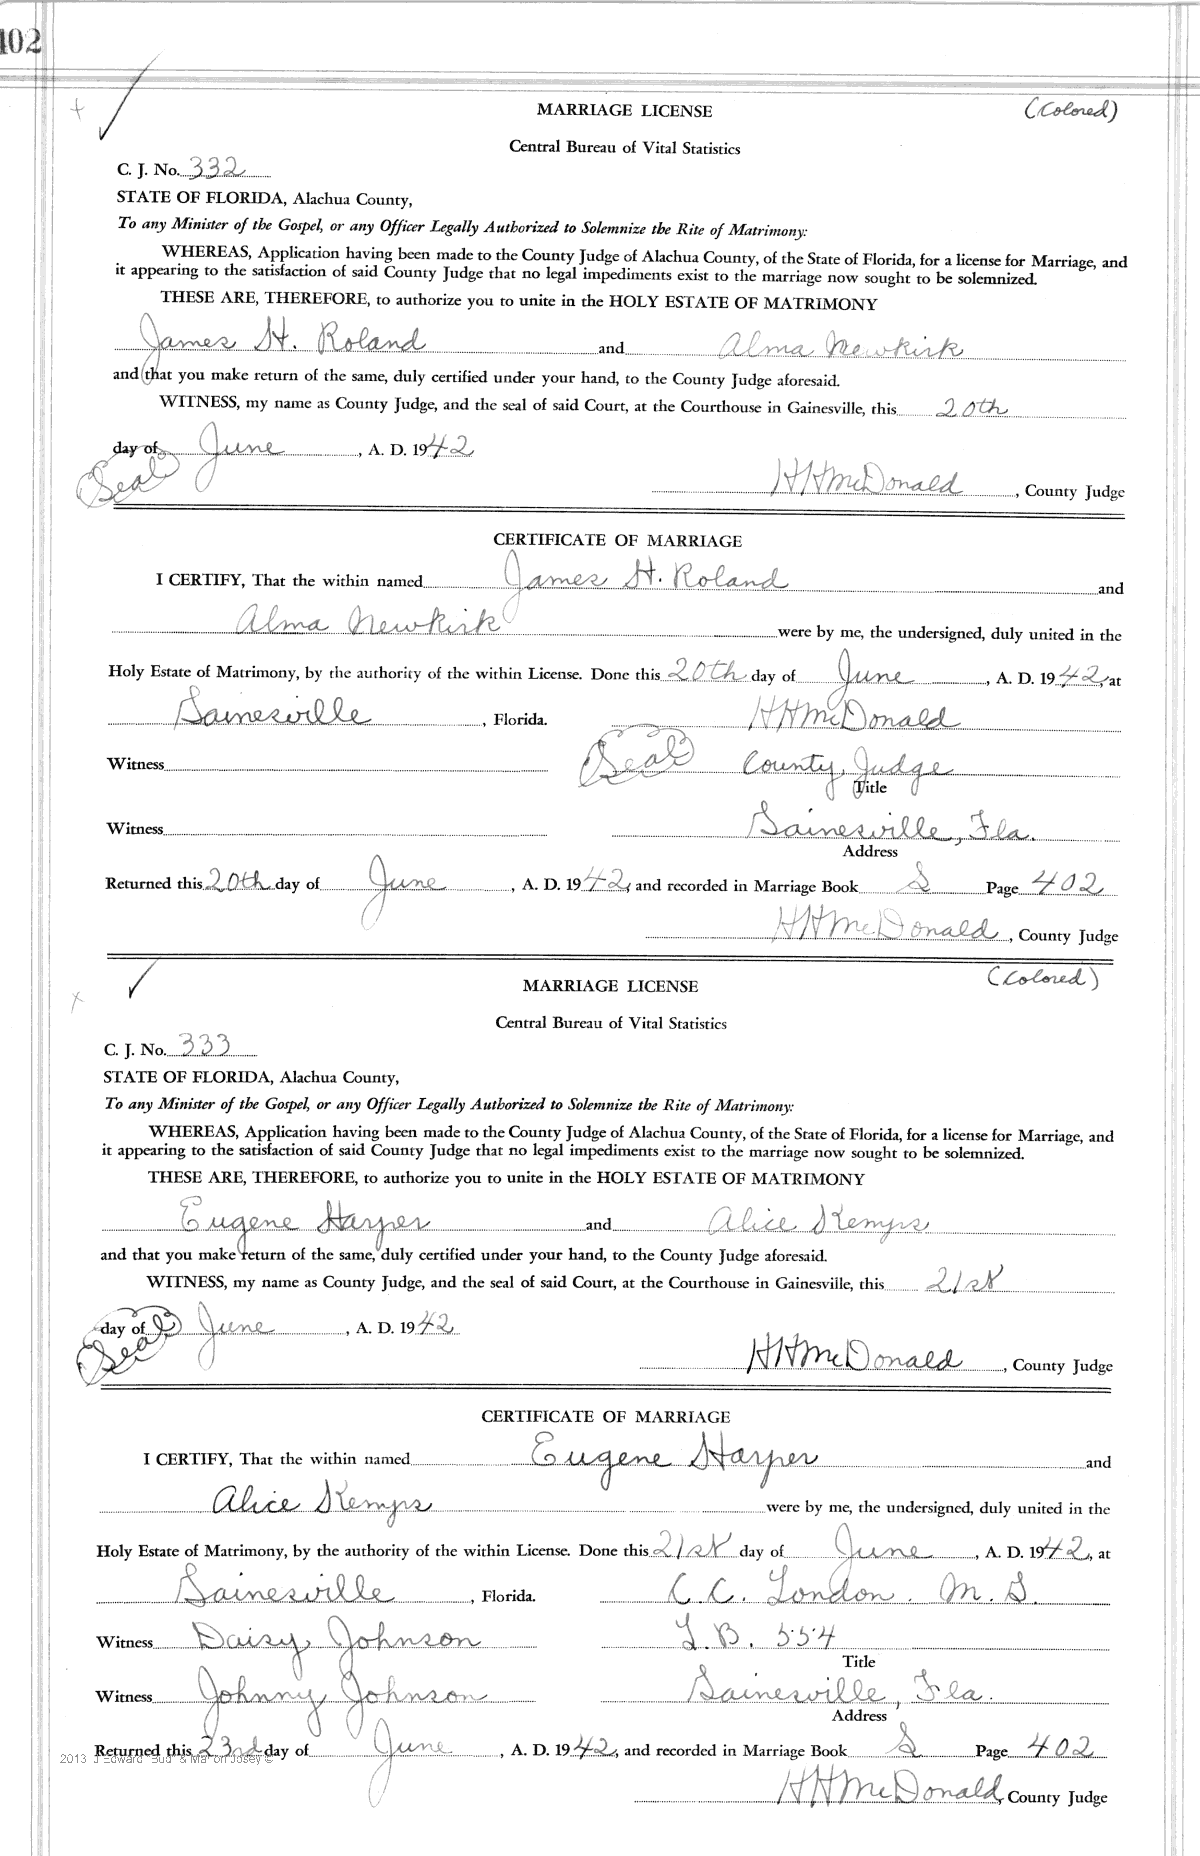 402
MARRIAGE LICENSE (Colored)
Central Bureau of Vital Statistics
C. J. No. 332
STATE OF FLORIDA, Alachua County,
To any Minister of the Gospel, or any Officer Legally Authorized to Solemnize the Rite of Matrimony:
WHEREAS, Application having been made to the County Judge of Alachua County, of the State of Florida, for a license for Marriage, and
it appearing to the satisfaction of said County Judge that no legal impediments exist to the marriage now sought to be solemnized.
THESE ARE, THEREFORE, to authorize you to unite in the HOLY ESTATE OF MATRIMONY
James H. Roland and Alma Newkirk
and that you make return of the same, duly certified under your hand, to the County Judge aforesaid.
WITNESS, my name as County Judge, and the seal of said Court, at the Courthouse in Gainesville, this 20th
day of June, A. D. 1942
Seal
HHMcDonald, County Judge
CERTIFICATE OF MARRIAGE
I CERTIFY, That the within named James H. Roland and
Alma Newkirk were by me, the undersigned, duly united in the
Holy Estate of Matrimony, by the authority of the within License. Done this 20th day of June, A. D. 1942, at
Gainesville, Florida. HHMcDonald
Witness Seal County Judge
Title
Witness Gainesville, Fla.
Address
Returned this 20th day of June, A. D. 1942, and recorded in Marriage Book S Page 402
HHMcDonald, County Judge
MARRIAGE LICENSE (Colored)
Central Bureau of Vital Statistics
C. J. No. 333
STATE OF FLORIDA, Alachua County,
To any Minister of the Gospel, or any Officer Legally Authorized to Solemnize the Rite of Matrimony:
WHEREAS, Application having been made to the County Judge of Alachua County, of the State of Florida, for a license for Marriage, and
it appearing to the satisfaction of said County Judge that no legal impediments exist to the marriage now sought to be solemnized.
THESE ARE, THEREFORE, to authorize you to unite in the HOLY ESTATE OF MATRIMONY
Eugene Harper and Alice Kemps
and that you make return of the same, duly certified under your hand, to the County Judge aforesaid.
WITNESS, my name as County Judge, and the seal of said Court, at the Courthouse in Gainesville, this 21st
day of June, A. D. 1942
Seal
HHMcDonald, County Judge
CERTIFICATE OF MARRIAGE
I CERTIFY, That the within named Eugene Harper and
Alice Kemps were by me, the undersigned, duly united in the
Holy Estate of Matrimony, by the authority of the within License. Done this 21st day of June, A. D. 1942, at
Gainesville, Florida. C. C. London. M. G.
Witness Daisy Johnson L. B. 554
Title
Witness Johnny Johnson Gainesville, Fla.
Address
Returned this 23rd day of June, A. D. 1942, and recorded in Marriage Book S Page 402
2013 J Edward "Bud" & Marion Josey ©
HHMcDonald, County Judge